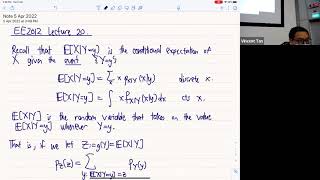 Note 5 Apr 2022
EE2012 Lecture 20.
Recall that E[X|Y=y] is the conditional expectation of
X given the event {Y=y}.
E[X|Y=y] = Σ_x x p_{X|Y}(x|y) discrete x.
E[X|Y=y] = ∫ x f_{X|Y}(x|y) dx cts x.
E[X|Y] is the random variable that takes on the value
E[X|Y=y] whenever Y=y.
That is, if we let Z := g(Y) = E[X|Y]
p_Z(z) = Σ p_Y(y)
y: E[X|Y=y] = z
Vincent Tan